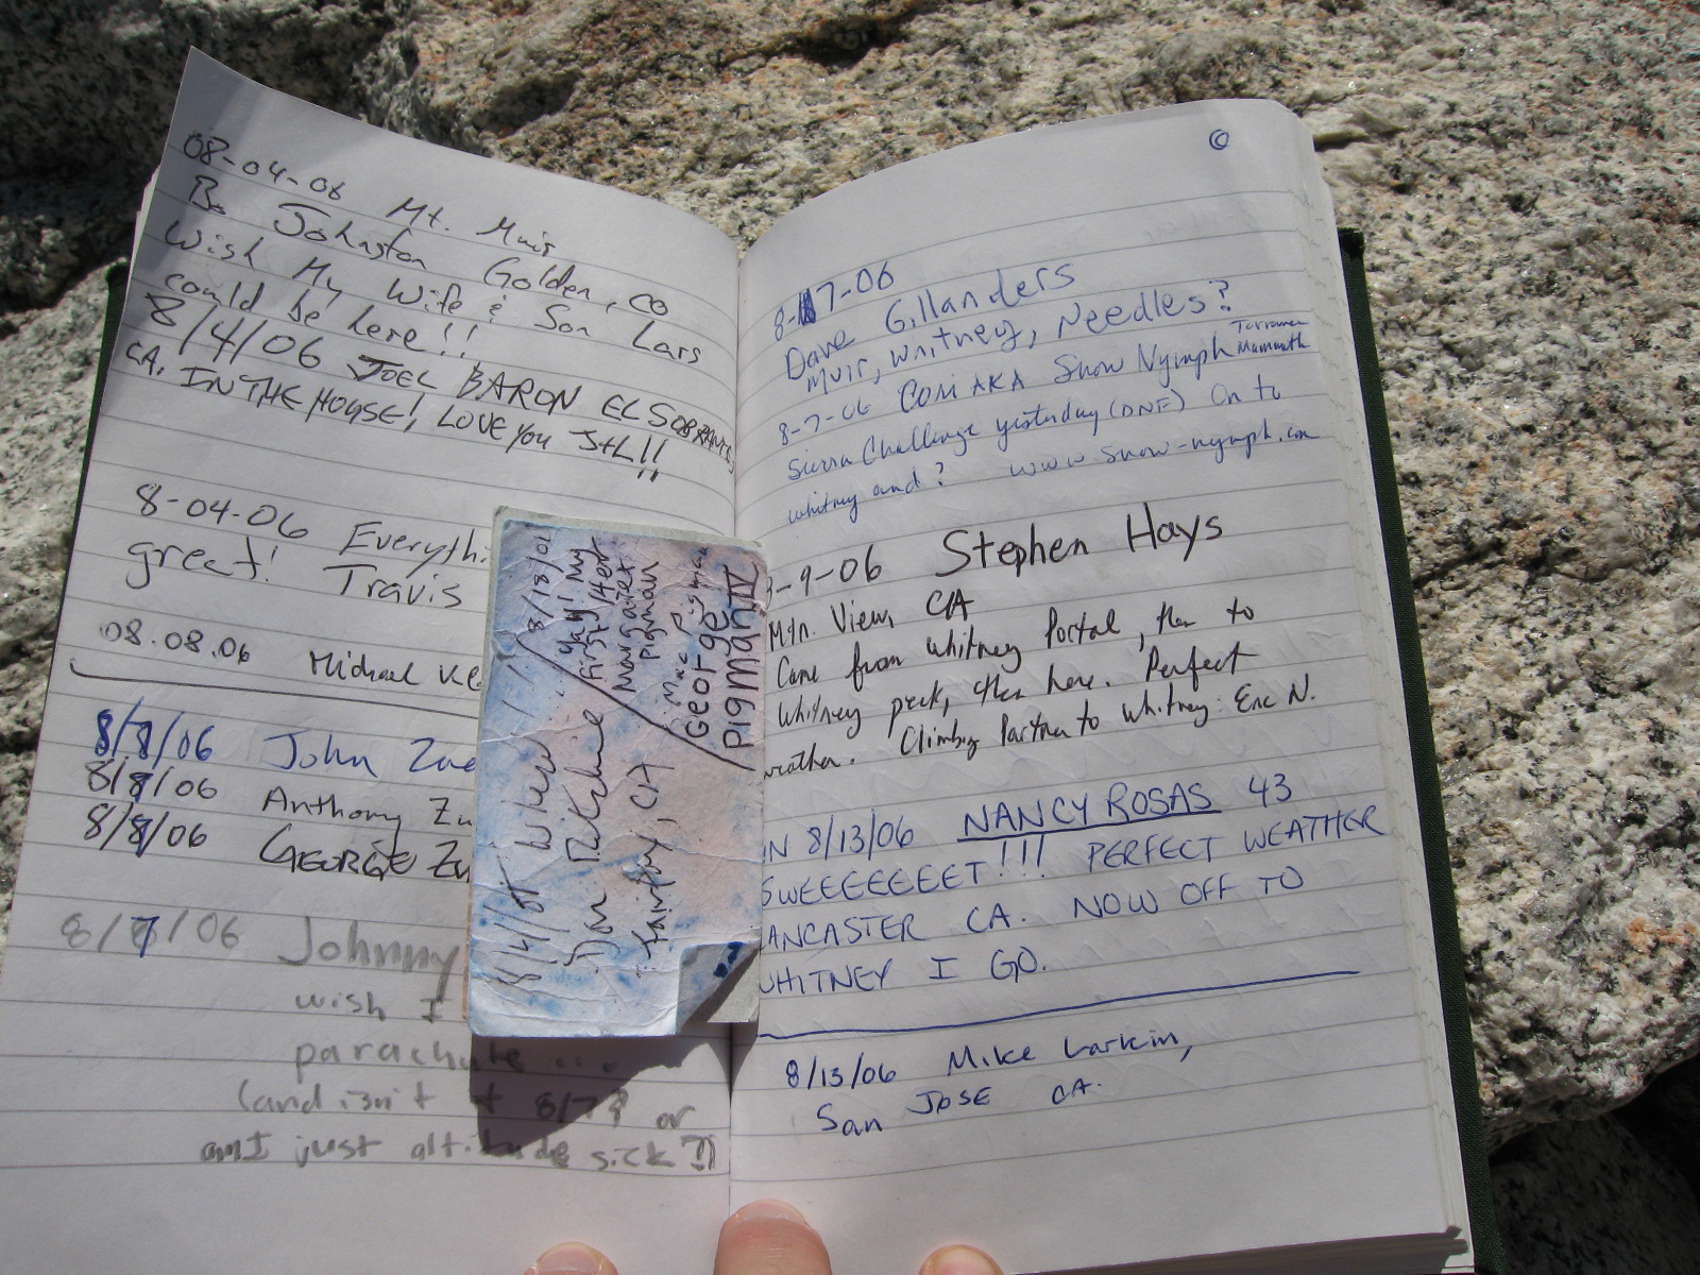 08-04-06 Mt. Muir
Bo Johnston Golden, CO
Wish My Wife & Son Lars
could be here!!
8/4/06 JOEL BARON EL SOBRANTE,
CA. IN THE HOUSE! LOVE YOU J+L!!
8-04-06 Everythi
great! Travis
08.08.06 Michael
8/7/06 John
8/8/06 Anthony Zu
8/8/06 GEORGE Zu
8/7/06 Johnny
wish I
parachute ...
(and isn't it 8/7? or
am I just altitude sick?!)
8/4/01 Whew!
Don
CA
8/18/01
Yay! My
first 14er
Margaret
Pigman
George
Pigman IV
8-7-06
Dave Gillanders
Muir, Whitney, Needles?
8-7-06 COM AKA Snow Nymph Mammoth
Sierra Challenge yesterday (DNF) On to
Whitney and? www.snow-nymph.com
-9-06 Stephen Hays
Mtn. View, CA
Came from Whitney Portal, then to
Whitney peak, then here. Perfect
weather. Climbing Partner to Whitney: Eric N.
8/13/06 NANCY ROSAS 43
SWEEEEEEEET!!! PERFECT WEATHER
ANCASTER CA. NOW OFF TO
WHITNEY I GO.
8/13/06 Mike Larkin,
San JOSE CA.